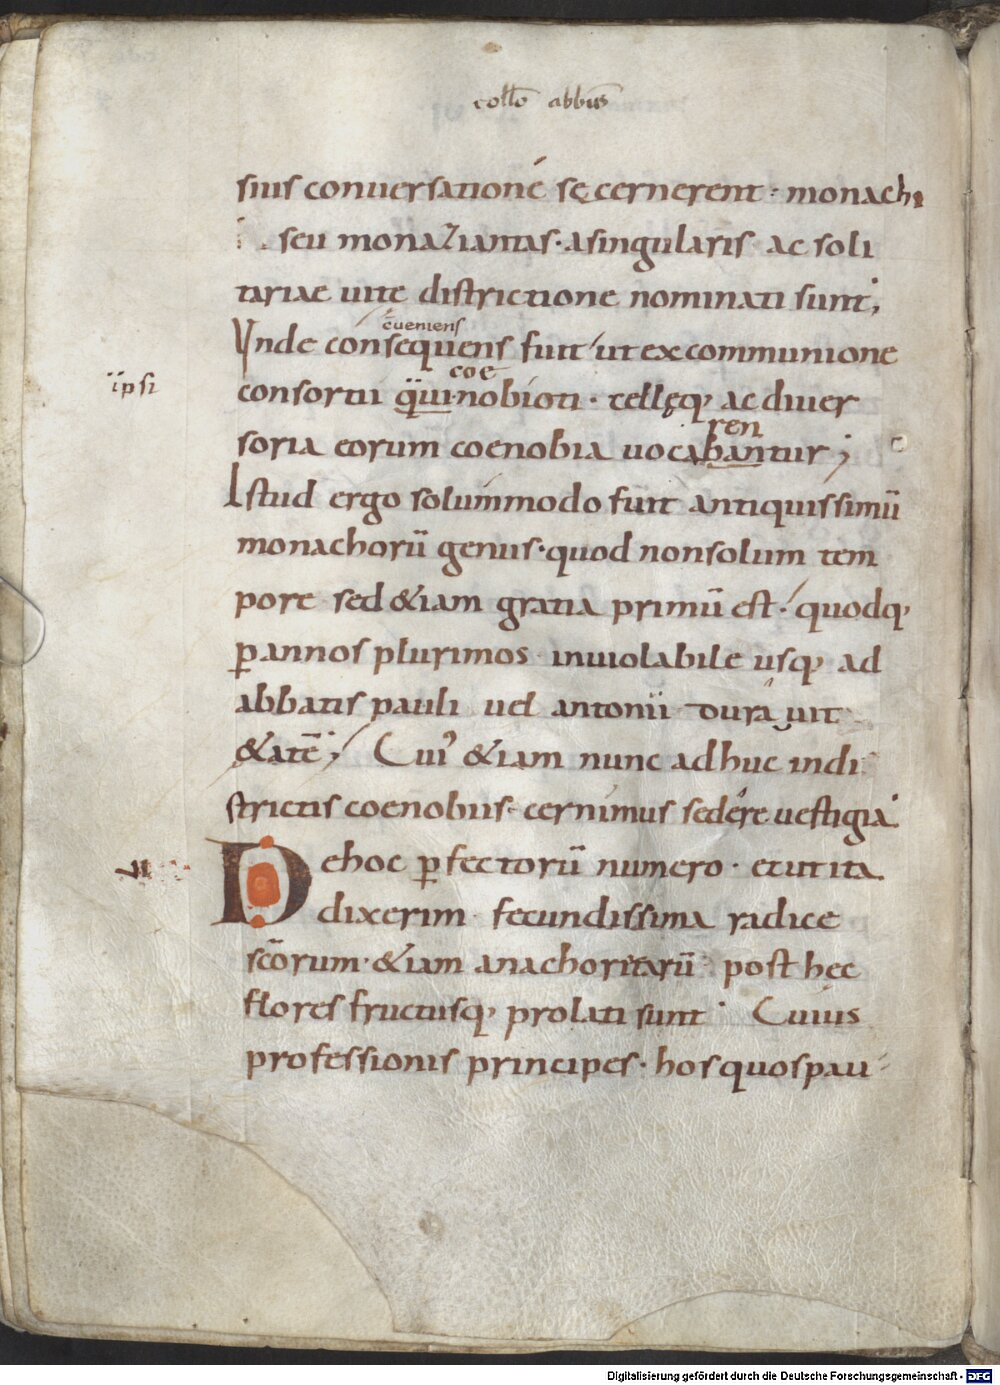 collo abbus
sius conuersationé sę cernerent· monachi
seu monaziantas· asingularis ac soli
tariae uite districtione nominati sunt;
c̄ueniens
Vnde consequens fuit ut ex communione
coe
ipsi
consortii qui nobioti· cellęq; ac diuer
ren
soria eorum coenobia uocabantur;
Istud ergo solummodo fuit antiquissimū
monachorū genus· quod nonsolum tem
pore sed &iam gratia primū est· quodq;
ꝑ annos plurimos inuiolabile usq; ad
abbatis pauli uel antonii durauit
&atē; Cui' &iam nunc adhuc indi
strictis coenobiis· cernimus sedére uestigia·
Dehoc ꝑfectorū numero· etutita
dixerim fecundissima radice
sc̄orum· &iam anachoritarū post hęc
flores fructusq; prolati sunt Cuius
professionis principes· hos quos pau